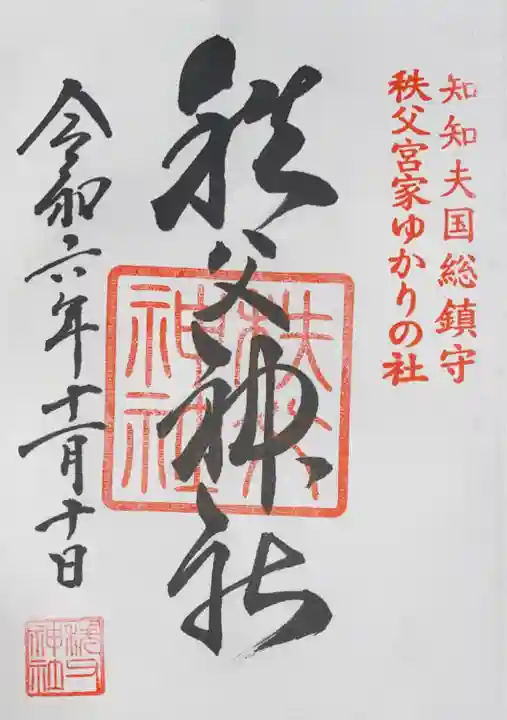 知知夫国総鎮守
秩父宮家ゆかりの社
秩父神社
秩父神社
令和六年十一月十日
秩父神社